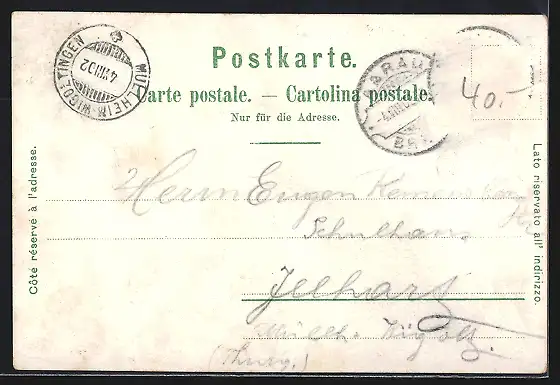 Postkarte.
Carte postale. — Cartolina postale.
Nur für die Adresse.
MÜLLHEIM-WIGOLTINGEN
4.VIII.02
AARAU
BRF.
40.-
Côté réservé à l'adresse.
Lato riservato all' indirizzo.
Herrn Eugen
Schulhaus
Illhart
Müllh. Wigolt.
(Thurg.)